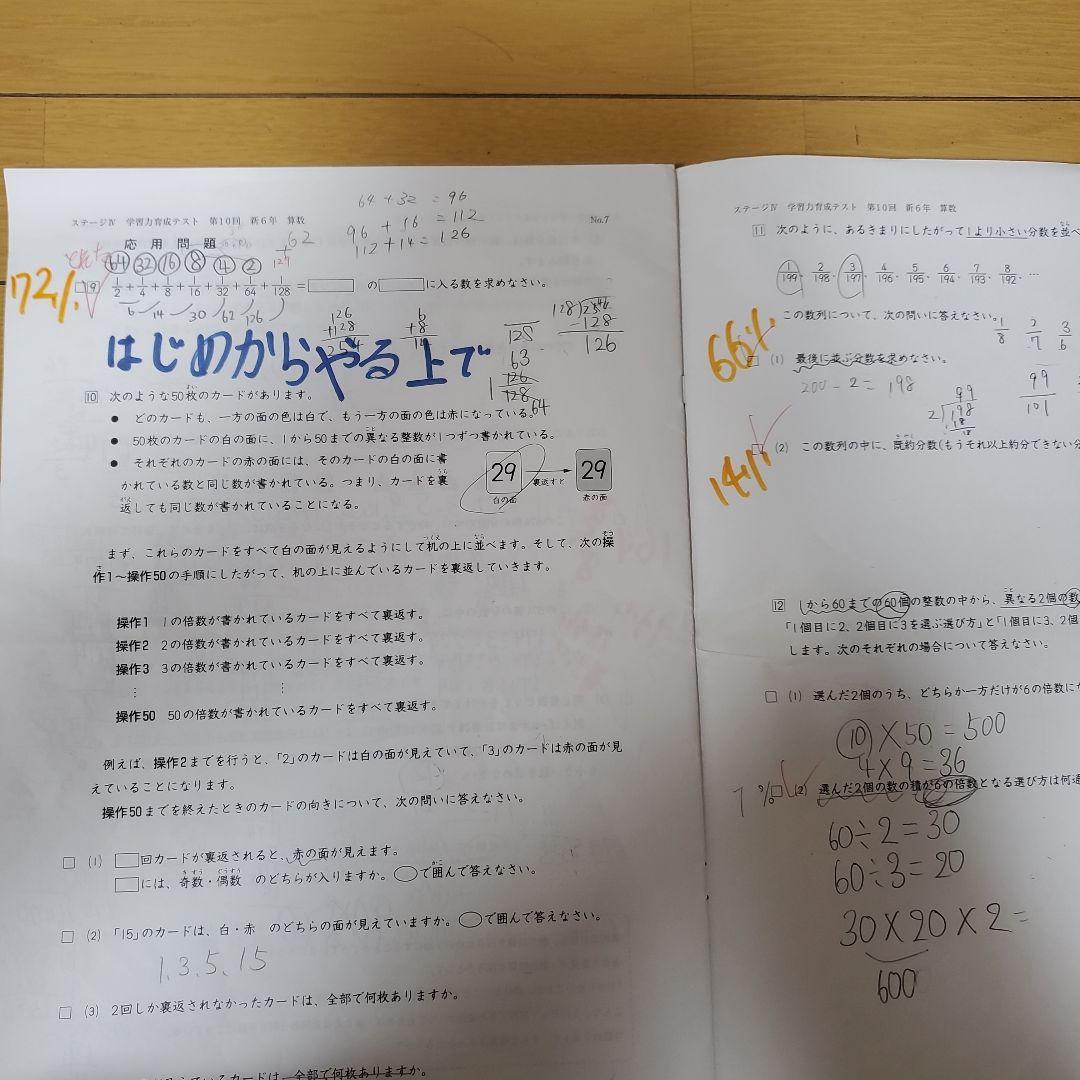 ステージⅣ 学習力育成テスト 第10回 新6年 算数
No.7
64+32 = 96
96 + 16 = 112
112+14= 126
応用問題
+62
127
64 32 16 8 4 2
172%
9 1/2 + 1/4 + 1/8 + 1/16 + 1/32 + 1/64 + 1/128 = □ の □ に入る数を求めなさい。
6 14 30 62 126
126
+128
254
6
+8
14
125
63
126
128
64
1
128
-128
126
はじめからやる上で
10 次のような50枚のカードがあります。
● どのカードも、一方の面の色は白で、もう一方の面の色は赤になっている。
● 50枚のカードの白の面に、1から50までの異なる整数が1つずつ書かれている。
● それぞれのカードの赤の面には、そのカードの白の面に書
かれている数と同じ数が書かれている。つまり、カードを裏
返しても同じ数が書かれていることになる。
29 裏返すと 29
白の面 赤の面
まず、これらのカードをすべて白の面が見えるようにして机の上に並べます。そして、次の操
作1～操作50の手順にしたがって、机の上に並んでいるカードを裏返していきます。
操作1 1の倍数が書かれているカードをすべて裏返す。
操作2 2の倍数が書かれているカードをすべて裏返す。
操作3 3の倍数が書かれているカードをすべて裏返す。
⋮ ⋮
操作50 50の倍数が書かれているカードをすべて裏返す。
例えば、操作2までを行うと、「2」のカードは白の面が見えていて、「3」のカードは赤の面が見
えていることになります。
操作50までを終えたときのカードの向きについて、次の問いに答えなさい。
□ (1) □回カードが裏返されると、赤の面が見えます。
□には、奇数・偶数 のどちらが入りますか。○で囲んで答えなさい。
□ (2) 「15」のカードは、白・赤 のどちらの面が見えていますか。○で囲んで答えなさい。
1.3.5.15
□ (3) 2回しか裏返されなかったカードは、全部で何枚ありますか。
えているカードは、全部で何枚ありますか。
ステージⅣ 学習力育成テスト 第10回 新6年 算数
11 次のように、あるきまりにしたがって1より小さい分数を並べ
1/199, 2/198, 3/197, 4/196, 5/195, 6/194, 7/193, 8/192, …
この数列について、次の問いに答えなさい。
1/8 2/7 3/6
66%
□ (1) 最後に並ぶ分数を求めなさい。
200-2=198
99
2 198
18
18
99/101
14%
□ (2) この数列の中に、既約分数(もうそれ以上約分できない分
12 1から60までの60個の整数の中から、異なる2個の数
「1個目に2、2個目に3を選ぶ選び方」と「1個目に3、2個
します。次のそれぞれの場合について答えなさい。
□ (1) 選んだ2個のうち、どちらか一方だけが6の倍数にな
10×50=500
4×9=36
7%
□ (2) 選んだ2個の数の積が6の倍数となる選び方は何通
60÷2=30
60÷3=20
30×20×2=
600